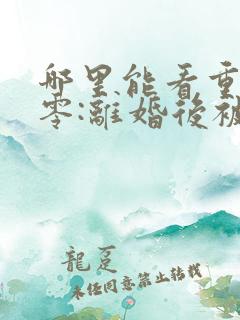 哪里能看重
零:離婚後被
龍足
未任同意禁止转载